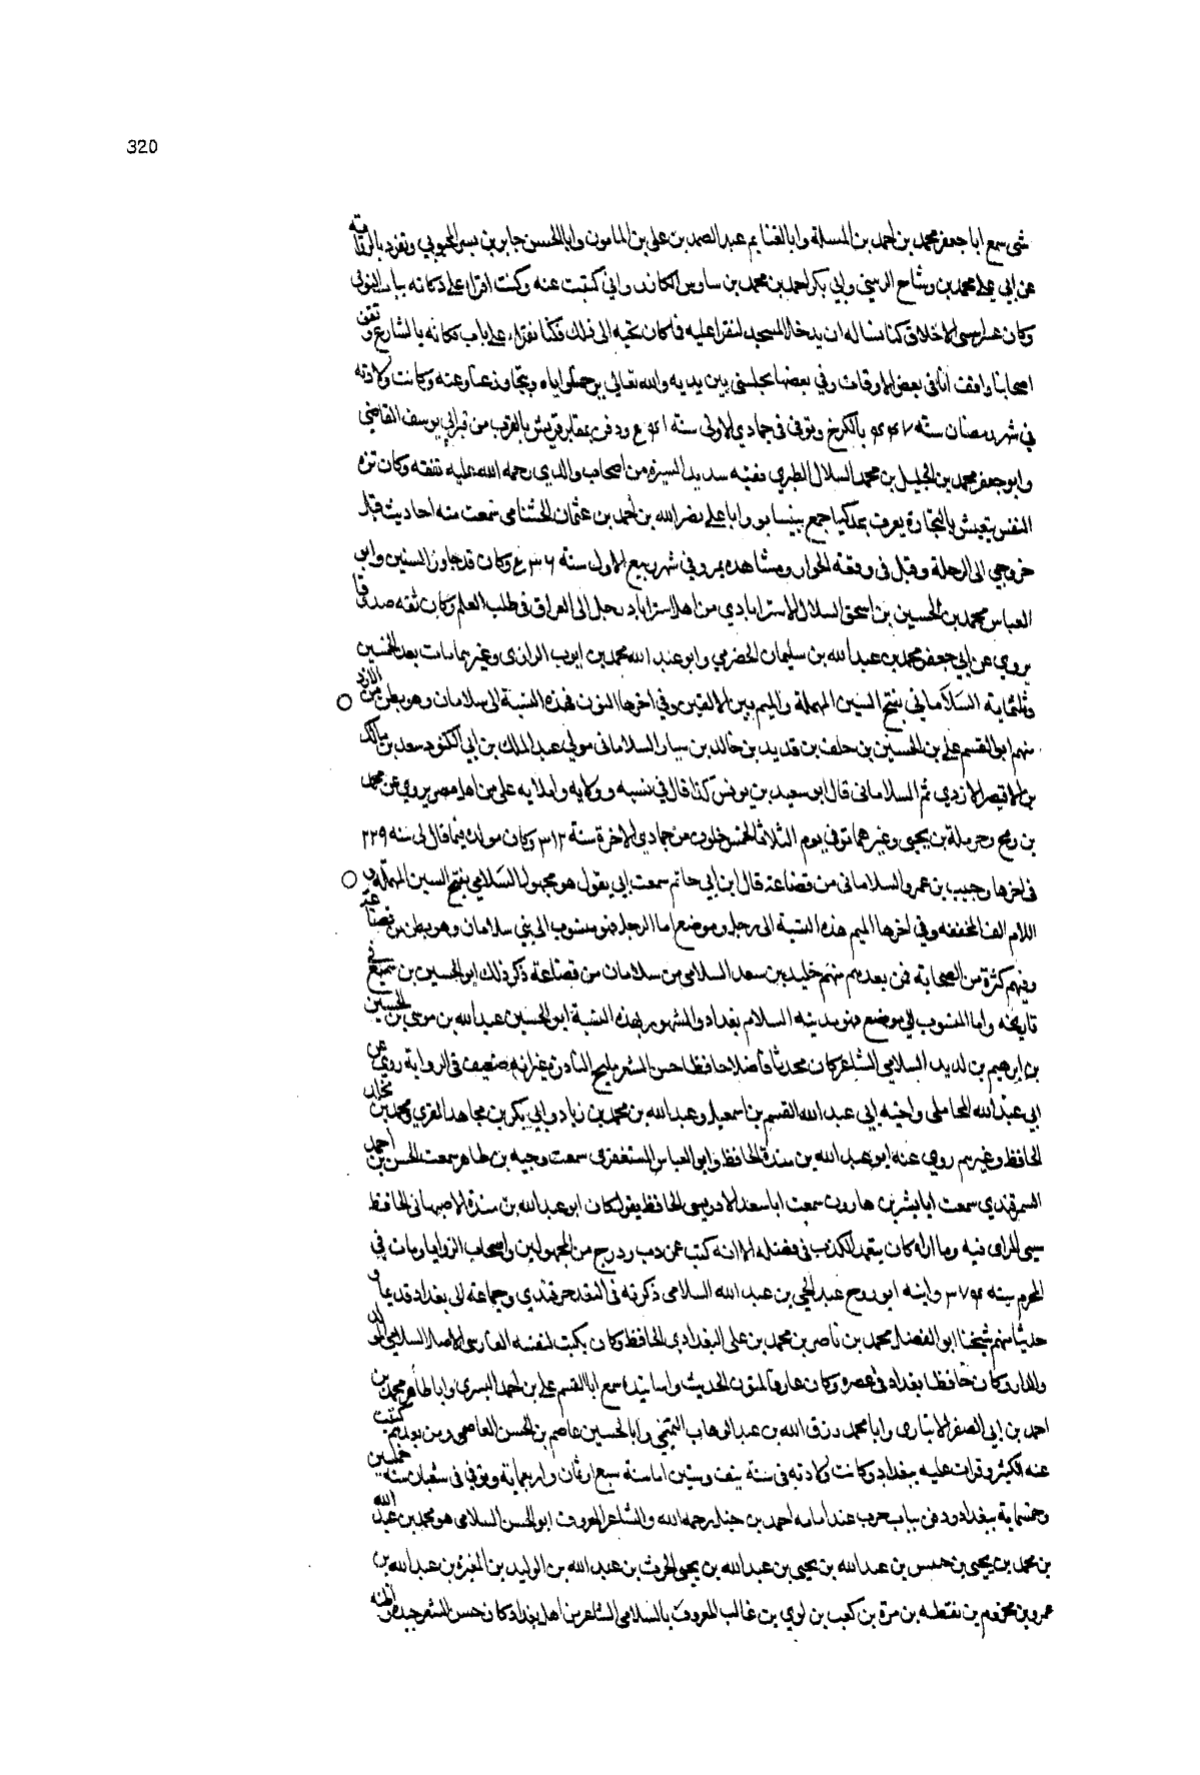 320
شى سمع ابا جعفر محمد بن احمد بن المسلمة وابا الغنايم عبد الصمد بن على بن المامون وابا الحسن جابر بن يسر المحبوبي وتفرد بالرواية
عن ابي على محمد بن وشاح الزينبي وابي بكر احمد بن محمد بن كتبت عنه وكنت اقرا على دكانه بباب
وكان عسر الاخلاق كنا نساله ان يدخل المسجد لنقرا عليه فما كان يجيبه الى ذلك فكنا نقراء على باب دكانه بالشارع وتقف
اصحابنا واقف انا فى بعض الاوقات وفي بعضها يجلسنى بين يديه والله تعالى يرحمنا واياه ويتجاوز عنا وعنه وكانت ولادته
فى شهر رمضان سنة ٤٤٧ بالكرخ وتوفى فى جمادي الاولى سنة ودفن بمقابر قريش بالقرب من قبر ابي يوسف القاضي
وابو جعفر محمد بن الجليل بن محمد السلال الطبري فقيه سديد السيرة من اصحاب والدي رحمه الله عليه تفقه وكان نزه
النفس يتعيش بالتجارة يعرف سمع بنيسابور ابا على نصر الله بن احمد بن عثمان الخشنامى سمعت منه احاديث قبل
خروجي الى الرحلة وقتل فى وقعة الخوارزمشاهيه بمرو في شهر ربيع الاول سنة ٥٣٦ وكان قد جاوز الستين وابو
العباس محمد بن الحسين بن اسحق السلال الاسترابادي من اهل استراباد رحل الى العراق فى طلب العلم وكان ثقه صدوقا
يروي عن ابي جعفر محمد بن عبد الله بن سليمان الحضرمي وابو عبد الله محمد بن ايوب الرازى وغيرهما مات بعد الخمسين
وثلثماية السَلاَماني بفتح السين المهملة والميم بين الالفين وفي اخرها النون هذه النسبة الى سلامان وهو بطن من الازد
منهم ابو القسم على بن الحسين بن خلف بن قديد بن خالد بن سيار السلامانى مولى عبد الملك بن ابي الكنود سعد بن مالك
بن الاقيصر الازدي ثم السلامانى قال ابو سعيد بن يونس كذا قال في نسبه وولايه واملايه على من اهل مصر يروي عن محمد
بن رمح وحرملة بن يحيى وغيرهما توفى يوم الثلاثا لخمس خلون من جمادي الاخرة سنة ٣١٢ وكان مولده فيما قال لى سنه ٢٢٩
فى اخرها وحبيب بن عمرو السلامانى من قضاعة قال ابن ابي حاتم سمعت ابي يقول هو مجهول السَلامي بفتح السين المهملة و
اللام الف المخففه وفي اخرها الميم هذه النسبة الى رجل وموضع اما الرجل فهو منسوب الى بني سلامان وهو بطن من قضاعة
وفيهم كثرة من الصحابة فمن بعدهم منهم خليد بن سعد السلامي من سلامان من قضاعة ذكر ذلك ابو الحسين بن سميع في
تاريخه واما المنسوب الى موضع فهو مدينه السلام بغداد والمشهور بهذه النسبة ابو الحسين عبد الله بن موسى بن الحسين
بن ابرهيم بن السلامي الشاعر كان محدثا فاضلا حافظا حسن الشعر مليح النادرة غير انه ضعيف فى الرواية روي عن
ابي عبد الله المحاملى واخيه ابي عبد الله القسم بن اسمعيل وعبد الله بن محمد بن زياد وابي بكر بن مجاهد المقري ومحمد بن مخلد
الحافظ وغيرهم روي عنه ابو عبد الله بن مندة الحافظ وابو العباس المستغفرى سمعت وجيه بن طاهر سمعت الحسن بن احمد
السمرقندي سمعت ابا بشر بن هارون سمعت ابا سعد الادريسى الحافظ يقول كان ابو عبد الله بن مندة الاصبهانى الحافظ
سيى الراى فيه وما اراه كان يتعمد الكذب فى فضله الا انه كتب عن دب ودرج من المجهولين واصحاب الزوايا ومات في
المحرم سنه ٣٧٤ وابنه ابو روح عبد الحي بن عبد الله السلامى ذكرته فى وجماعة الى بغداد قديما و
حديثا منهم شيخنا ابو الفضل محمد بن ناصر بن محمد بن على البغدادي الحافظ وكان يكتب لنفسه الفارسى الاصل السلامي
والدار وكان حافظا بغداد فى عصره وكان عارفا لمتون الحديث واسانيده سمع ابا القسم على بن احمد البسرى وابا طاهر محمد بن
احمد بن ابي الصقر الانبارى وابا محمد رزق الله بن عبد الوهاب التميمي وابا الحسين عاصم بن الحسن العاصمى ومن بعدهم كتبت
عنه الكثير وقرات عليه ببغداد وكانت ولادته فى سنة نيف وستين اما سنة سبع او ثمان واربعماية وتوفى فى شعبان سنة خمسين
وخمسماية ببغداد ودفن بباب حرب عند امامه احمد بن حنبل رحمه الله والشاعر المعروف ابو الحسن السلامى هو محمد بن عبد الله
بن محمد بن يحيى بن حسن بن عبد الله بن يحيى بن عبد الله بن الحرث بن عبد الله بن الوليد بن الوليد بن المغيرة بن عبد الله بن
عمرو بن مخزوم بن يقظه بن مرة بن كعب بن لوي بن غالب المعروف بالسلامى الشاعر من اهل بغداد كان حسن الشعر